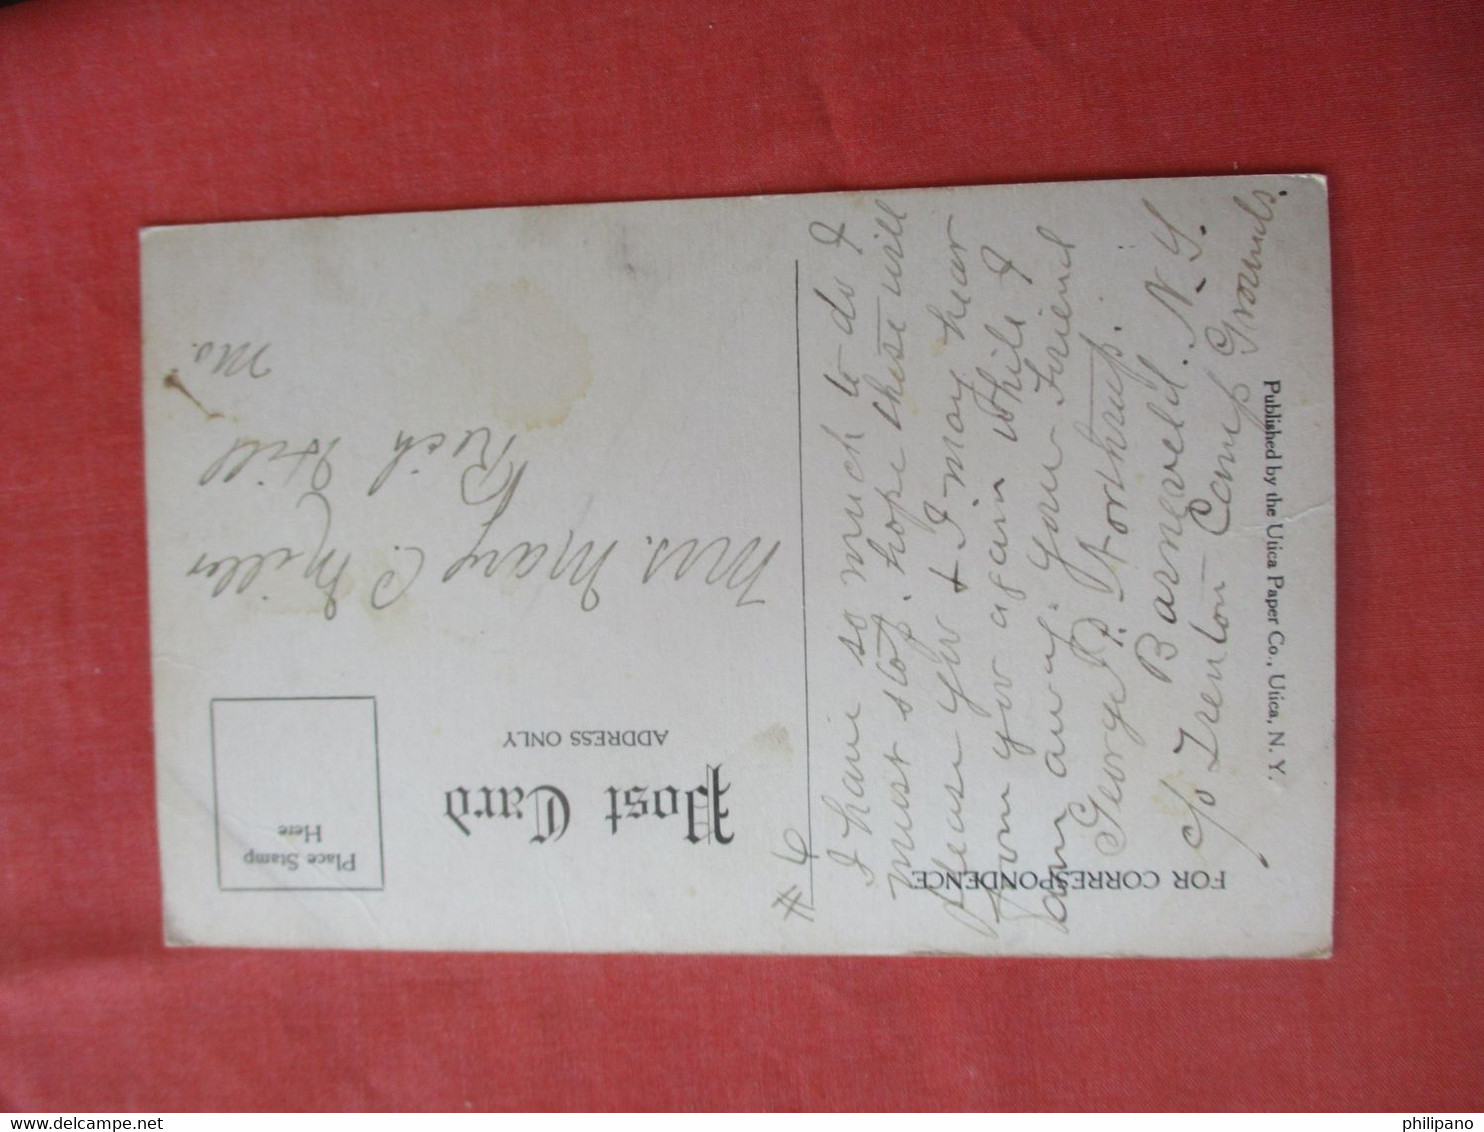 Post Card
ADDRESS ONLY
Place Stamp
Here
FOR CORRESPONDENCE
# 6
Mrs. Mary C. Miller
Rich Hill
Mo.
I have so much to do I
must stop. hope these will
please you & I may hear
from you again while I
am away. Your Friend
George P. Northrup.
Barneveld. N.Y.
c/o Trenton Camp Grounds.
Published by the Utica Paper Co., Utica, N. Y.
philipano